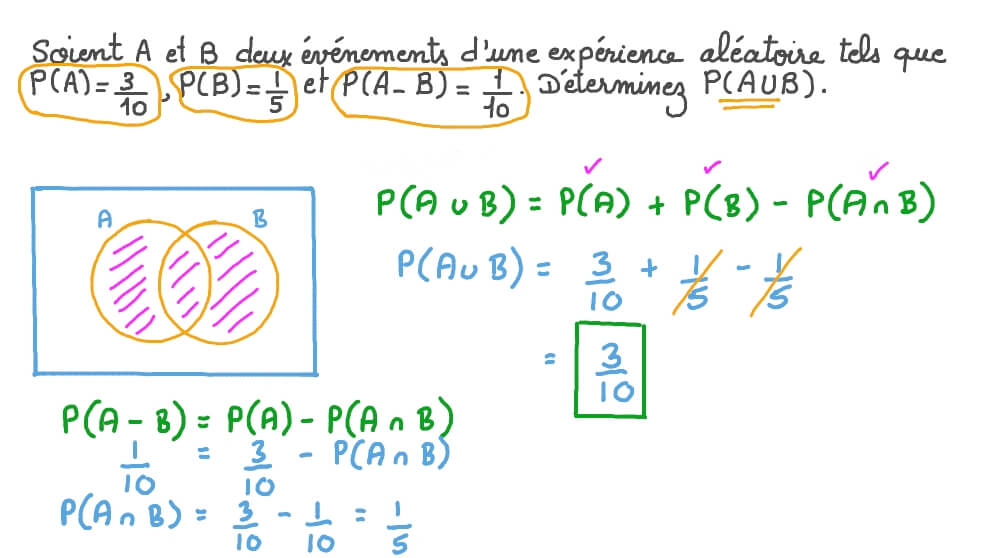 Soient A et B deux événements d'une expérience aléatoire tels que
P(A) = 3/10, P(B) = 1/5 et P(A - B) = 1/10. Déterminez P(A∪B).
A B
P(A ∪ B) = P(A) + P(B) - P(A ∩ B)
P(A ∪ B) = 3/10 + 1/5 - 1/5
= 3/10
P(A - B) = P(A) - P(A ∩ B)
1/10 = 3/10 - P(A ∩ B)
P(A ∩ B) = 3/10 - 1/10 = 1/5